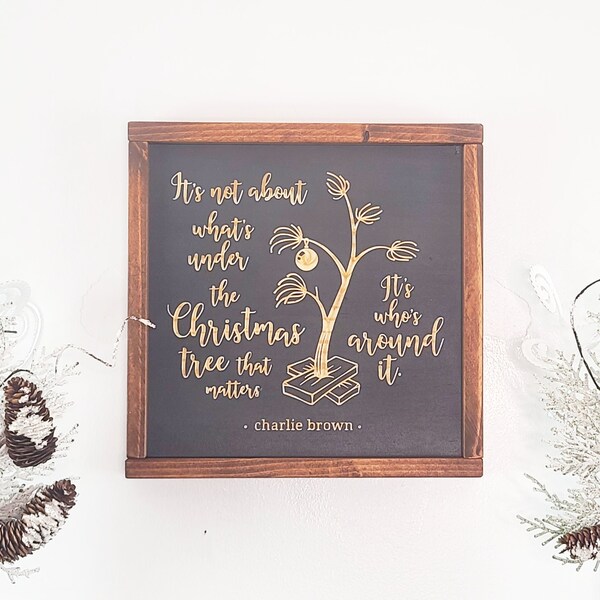 It's not about
what's
under
the
Christmas
tree that
matters
It's
who's
around
it.
· charlie brown ·